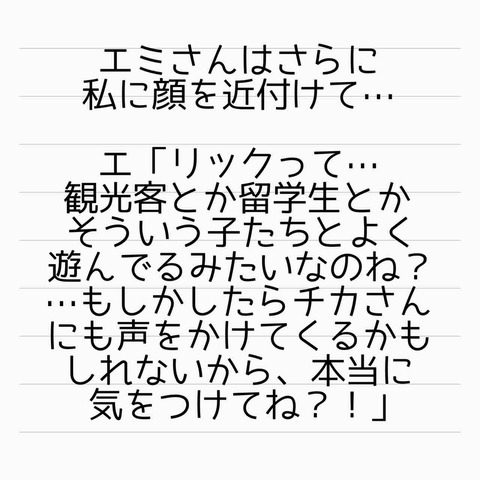 エミさんはさらに
私に顔を近付けて…
エ「リックって…
観光客とか留学生とか
そういう子たちとよく
遊んでるみたいなのね？
…もしかしたらチカさん
にも声をかけてくるかも
しれないから、本当に
気をつけてね？！」